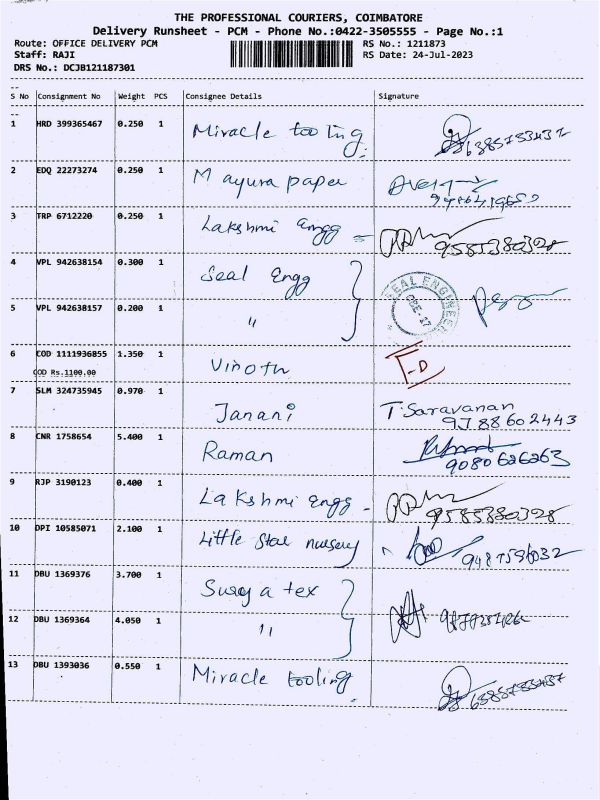 THE PROFESSIONAL COURIERS, COIMBATORE
Delivery Runsheet - PCM - Phone No.:0422-3505555 - Page No.:1
Route: OFFICE DELIVERY PCM RS No.: 1211873
Staff: RAJI RS Date: 24-Jul-2023
DRS No.: DCJB121187301
S No Consignment No Weight PCS Consignee Details Signature
1 HRD 399365467 0.250 1 Miracle tooling.
2 EDQ 22273274 0.250 1 Mayura paper
3 TRP 6712220 0.250 1 Lakshmi Engg - 9585380328
4 VPL 942638154 0.300 1 Seal Engg
SEAL ENGINEER
CBE-17
5 VPL 942638157 0.200 1 "
6 COD 1111936855 1.350 1 Vinoth I-D
COD Rs.1100.00
7 SLM 324735945 0.970 1 Janani T. Saravanan
9788602443
8 CNR 1758654 5.400 1 Raman
9080626263
9 RJP 3190123 0.400 1 Lakshmi Engg - 9585380328
10 DPI 10585071 2.100 1 Little Star nursery
11 DBU 1369376 3.700 1 Surya tex
12 DBU 1369364 4.050 1 "
13 DBU 1393036 0.550 1 Miracle tooling.